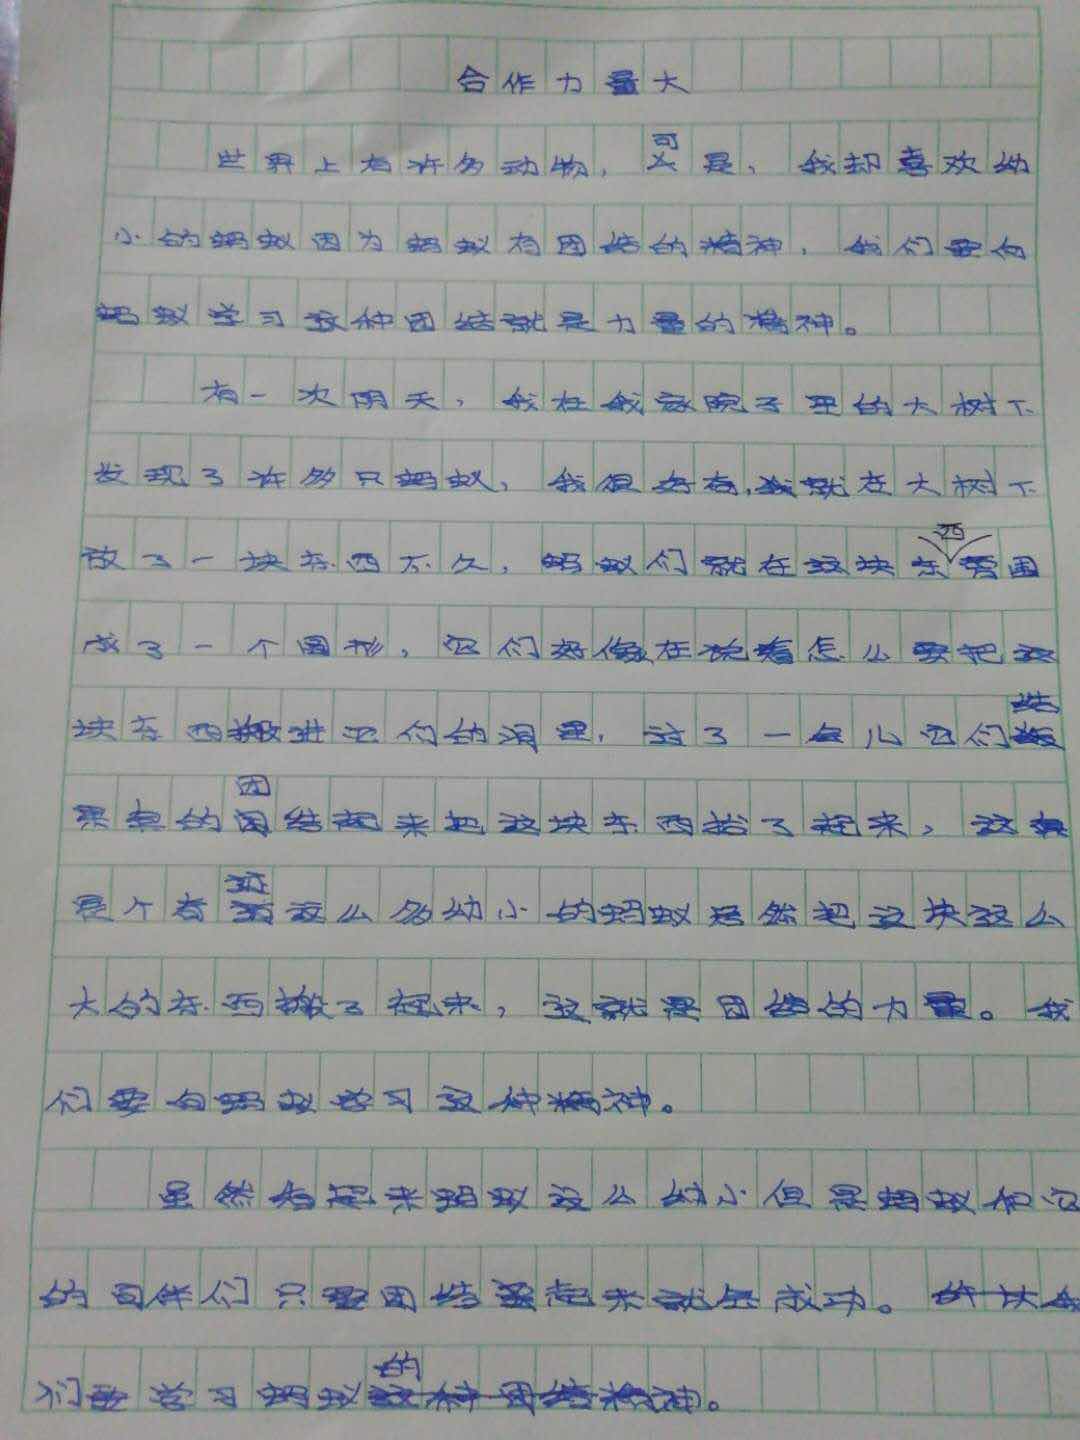 合作力量大
世界上有许多动物，可是，我却喜欢幼
小的蚂蚁因为蚂蚁有团结的精神，我们要向
蚂蚁学习这种团结就是力量的精神。
有一次阴天，我在我家院子里的大树下
发现了许多只蚂蚁，我很好奇，我就在大树下
放了一块东西不久，蚂蚁们就在这块东西旁围
成了一个圆形，它们好像在说着怎么要把这
块东西搬进它们的洞里，过了一会儿它们结
果真的团结起来把这块东西抬了起来，这真
是个奇迹这么多幼小的蚂蚁居然把这块这么
大的东西搬了起来，这就是团结的力量。我
们要向蚂蚁学习这种精神。
虽然看起来蚂蚁这么幼小但是蚂蚁和它
的同伴们只要团结起来就会成功。
们要学习蚂蚁的这种团结精神。